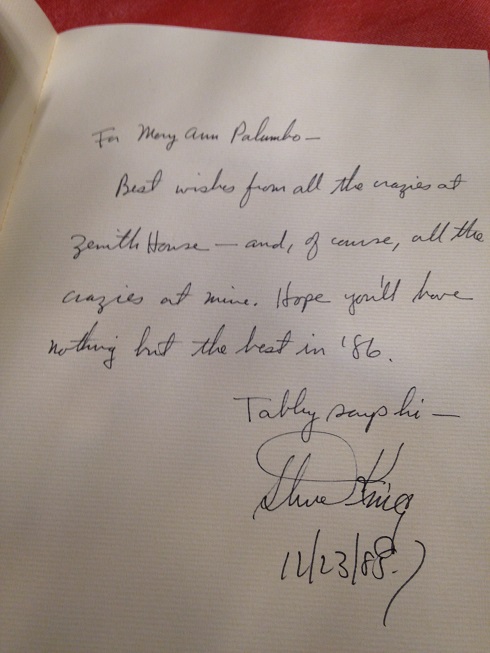 For Mary Ann Palumbo —
Best wishes from all the crazies at
Zenith House — and, of course, all the
crazies at mine. Hope you'll have
nothing but the best in '86.
Tabby says hi —
Steve King
12/23/85.